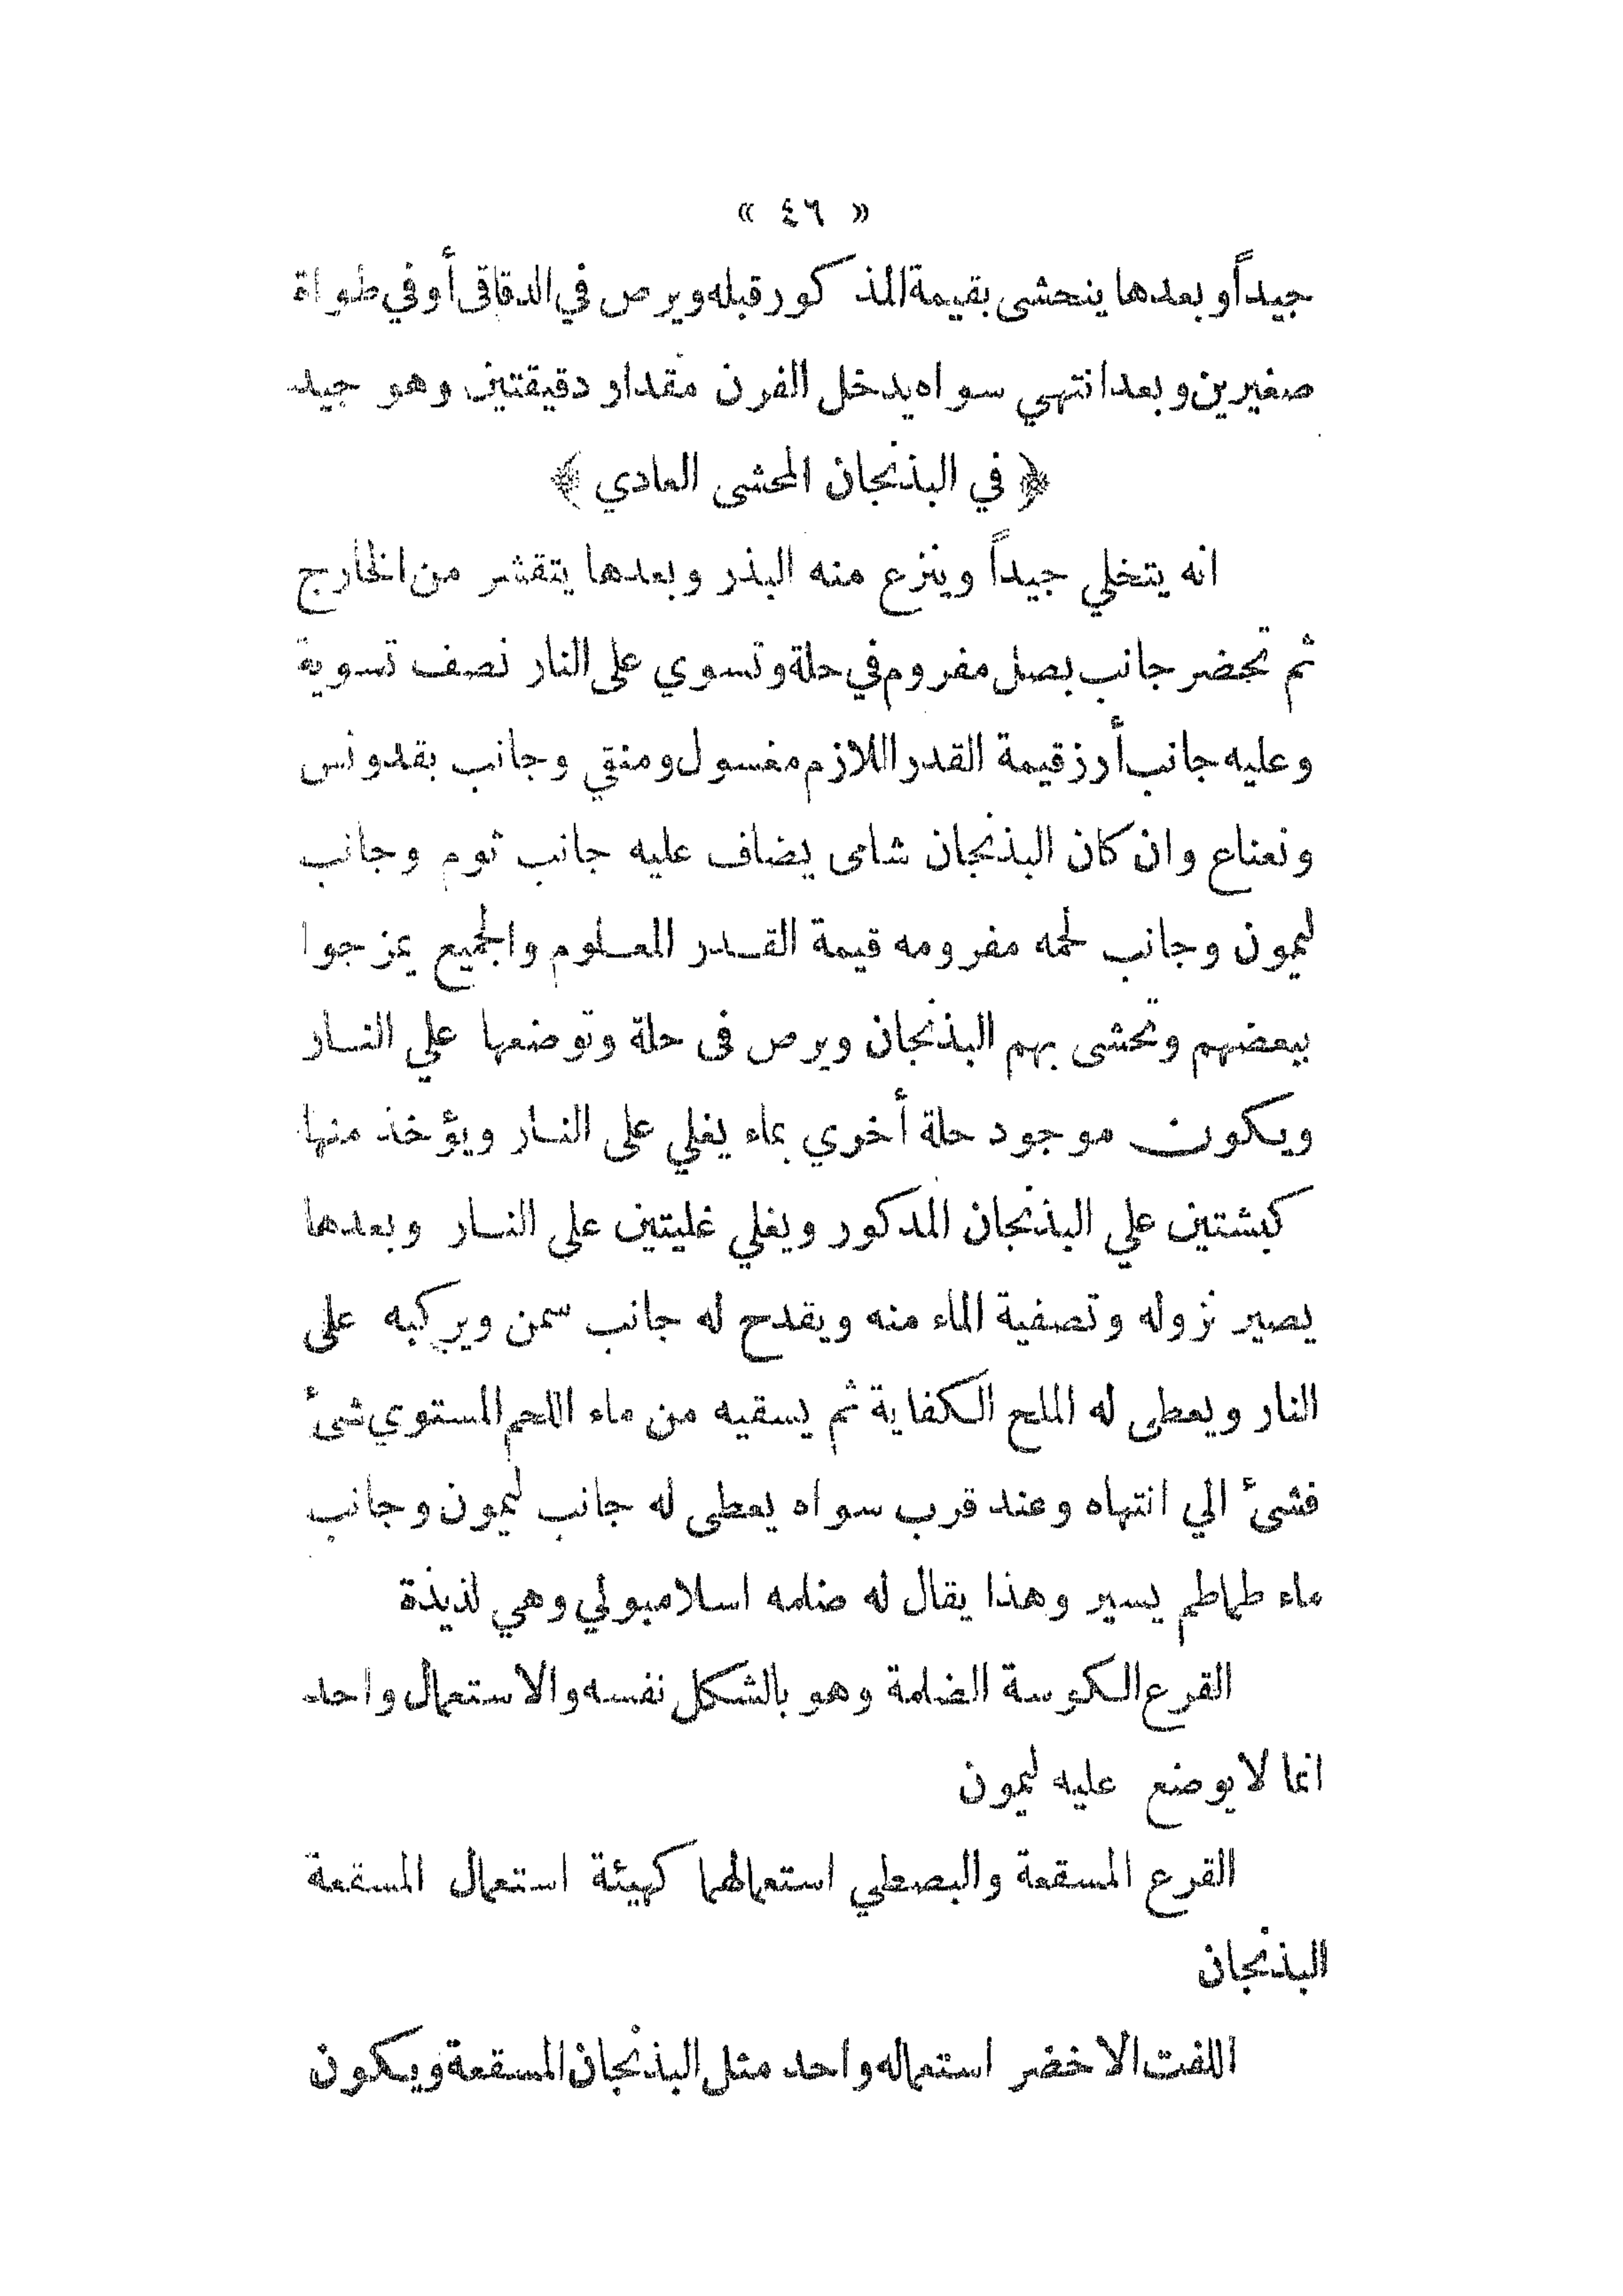 « ٤٦ »
جيداً وبعدها ينحشى بقيمة المذكور قبله ويرص في الدقاقى أو في طواة
صغيرين وبعد انتهي سواه يدخل الفرن مقداو دقيقتين وهو جيد
﴿ في البذنجان المحشى العادي ﴾
انه يتخلي جيداً وينزع منه البذر وبعدها يتقشر من الخارج
ثم تحضر جانب بصل مفروم في حلة وتسوي على النار نصف تسوية
وعليه جانب أرز قيمة القدر اللازم مغسول ومنقي وجانب بقدونس
ونعناع وان كان البذنجان شامى يضاف عليه جانب ثوم وجانب
ليمون وجانب لحمه مفرومه قيمة القدر المعلوم والجميع يمزجوا
ببعضهم وتحشى بهم البذنجان ويرص فى حلة وتوضعها علي النار
ويكون موجود حلة أخري بماء يغلي على النار ويؤخذ منها
كبشتين علي البذنجان المدكور ويغلي غليتين على النار وبعدها
يصير نزوله وتصفية الماء منه ويقدح له جانب سمن ويركبه على
النار ويعطى له الملح الكفاية ثم يسقيه من ماء اللحم المستوي شئ
فشئ الي انتهاه وعند قرب سواه يعطى له جانب ليمون وجانب
ماء طماطم يسير وهذا يقال له ضلمه اسلامبولي وهي لذيذة
القرع الكوسة الضلمة وهو بالشكل نفسه والاستعمال واحد
انما لا يوضع عليه ليمون
القرع المسقعة والبصطي استعمالهما كهيئة استعمال المسقعة
البذنجان
اللفت الاخضر استعماله واحد مثل البذنجان المسقعة ويكون